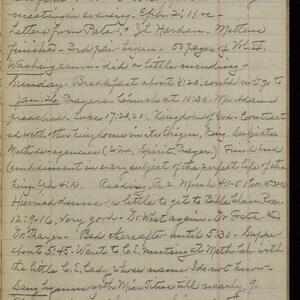 meeting this evening. Eph. 2:11 &c
Letters from Pater, & Jh. Harden. Mittens
finished - 2nd pair begun. 50 pages of Vol. IV.
Washing came - did a little mending -
Sunday. Breakfast about 8:20. could not go to
Jan. 26 Prayers. Church at 10:30 -
preached. Luke 17:20,21. Kingdom of God - Contrast
ed with other kingdoms in its Origin, King, Subjects
Methods + agencies (Word, Spirit, Prayer) Final end
(embodiment in every subject of the perfect life of the
King Eph 4:13. Reading Rs 2 Micah 4:1-5 1 Cor. 15:20-28
Hurried dinner - a little to get to Bible Class. Rom.
12:9-16. Very good. Dr. West again. Dr.
Dr. Thayer. Read thereafter until 5:30 - Supper
about 5:45 - Went to C.E. meeting at Meth. Ch. with
the little C.E. lady whose name I do not know -
Sang hymns with Miss Titus till nearly 9.